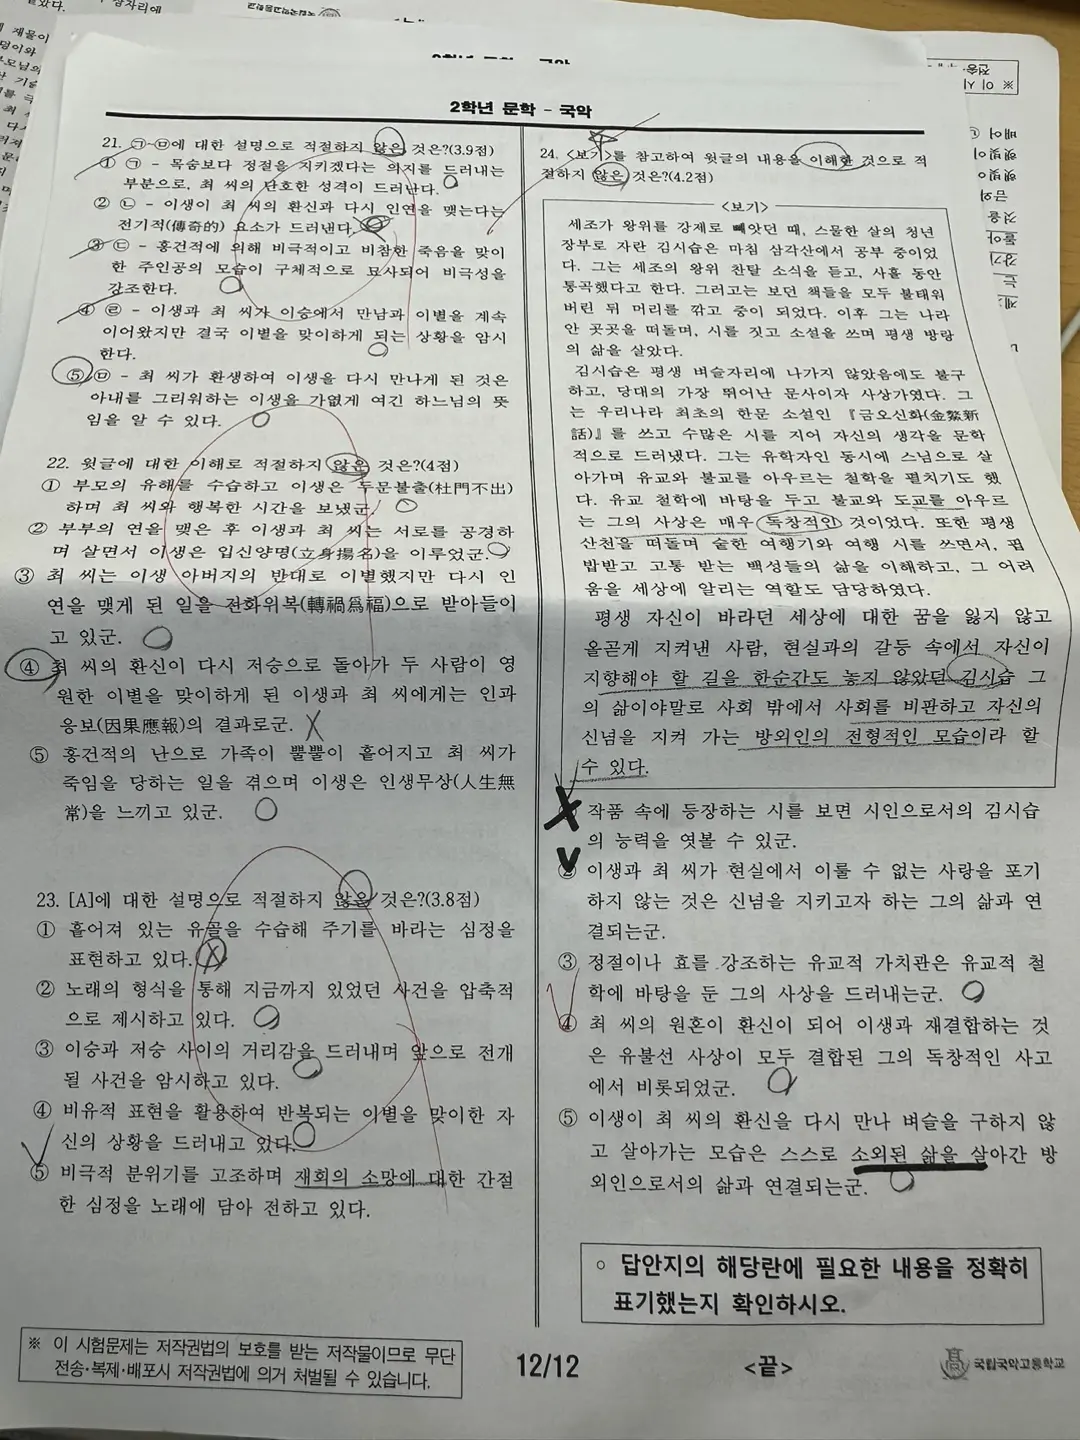 2학년 문학 - 국악
21. ㉠~㉤에 대한 설명으로 적절하지 않은 것은?(3.9점)
① ㉠ - 목숨보다 정절을 지키겠다는 의지를 드러내는
부분으로, 최 씨의 단호한 성격이 드러난다.
② ㉡ - 이생이 최 씨의 환신과 다시 인연을 맺는다는
전기적(傳奇的) 요소가 드러낸다.
③ ㉢ - 홍건적에 의해 비극적이고 비참한 죽음을 맞이
한 주인공의 모습이 구체적으로 묘사되어 비극성을
강조한다.
④ ㉣ - 이생과 최 씨가 이승에서 만남과 이별을 계속
이어왔지만 결국 이별을 맞이하게 되는 상황을 암시
한다.
⑤ ㉤ - 최 씨가 환생하여 이생을 다시 만나게 된 것은
아내를 그리워하는 이생을 가엾게 여긴 하느님의 뜻
임을 알 수 있다.
22. 윗글에 대한 이해로 적절하지 않은 것은?(4점)
① 부모의 유해를 수습하고 이생은 두문불출(杜門不出)
하며 최 씨와 행복한 시간을 보냈군.
② 부부의 연을 맺은 후 이생과 최 씨는 서로를 공경하
며 살면서 이생은 입신양명(立身揚名)을 이루었군.
③ 최 씨는 이생 아버지의 반대로 이별했지만 다시 인
연을 맺게 된 일을 전화위복(轉禍爲福)으로 받아들이
고 있군.
④ 최 씨의 환신이 다시 저승으로 돌아가 두 사람이 영
원한 이별을 맞이하게 된 이생과 최 씨에게는 인과
응보(因果應報)의 결과로군.
⑤ 홍건적의 난으로 가족이 뿔뿔이 흩어지고 최 씨가
죽임을 당하는 일을 겪으며 이생은 인생무상(人生無
常)을 느끼고 있군.
23. [A]에 대한 설명으로 적절하지 않은 것은?(3.8점)
① 흩어져 있는 유골을 수습해 주기를 바라는 심정을
표현하고 있다.
② 노래의 형식을 통해 지금까지 있었던 사건을 압축적
으로 제시하고 있다.
③ 이승과 저승 사이의 거리감을 드러내며 앞으로 전개
될 사건을 암시하고 있다.
④ 비유적 표현을 활용하여 반복되는 이별을 맞이한 자
신의 상황을 드러내고 있다.
⑤ 비극적 분위기를 고조하며 재회의 소망에 대한 간절
한 심정을 노래에 담아 전하고 있다.
※ 이 시험문제는 저작권법의 보호를 받는 저작물이므로 무단
전송·복제·배포시 저작권법에 의거 처벌될 수 있습니다.
24. <보기>를 참고하여 윗글의 내용을 이해한 것으로 적
절하지 않은 것은?(4.2점)
<보기>
세조가 왕위를 강제로 빼앗던 때, 스물한 살의 청년
장부로 자란 김시습은 마침 삼각산에서 공부 중이었
다. 그는 세조의 왕위 찬탈 소식을 듣고, 사흘 동안
통곡했다고 한다. 그러고는 보던 책들을 모두 불태워
버린 뒤 머리를 깎고 중이 되었다. 이후 그는 나라
안 곳곳을 떠돌며, 시를 짓고 소설을 쓰며 평생 방랑
의 삶을 살았다.
김시습은 평생 벼슬자리에 나가지 않았음에도 불구
하고, 당대의 가장 뛰어난 문사이자 사상가였다. 그
는 우리나라 최초의 한문 소설인 『금오신화(金鰲新
話)』를 쓰고 수많은 시를 지어 자신의 생각을 문학
적으로 드러냈다. 그는 유학자인 동시에 스님으로 살
아가며 유교와 불교를 아우르는 철학을 펼치기도 했
다. 유교 철학에 바탕을 두고 불교와 도교를 아우르
는 그의 사상은 매우 독창적인 것이었다. 또한 평생
산천을 떠돌며 숱한 여행기와 여행 시를 쓰면서, 핍
박받고 고통 받는 백성들의 삶을 이해하고, 그 어려
움을 세상에 알리는 역할도 담당하였다.
평생 자신이 바라던 세상에 대한 꿈을 잃지 않고
올곧게 지켜낸 사람, 현실과의 갈등 속에서 자신이
지향해야 할 길을 한순간도 놓지 않았던 김시습 그
의 삶이야말로 사회 밖에서 사회를 비판하고 자신의
신념을 지켜 가는 방외인의 전형적인 모습이라 할
수 있다.
작품 속에 등장하는 시를 보면 시인으로서의 김시습
의 능력을 엿볼 수 있군.
② 이생과 최 씨가 현실에서 이룰 수 없는 사랑을 포기
하지 않는 것은 신념을 지키고자 하는 그의 삶과 연
결되는군.
③ 정절이나 효를 강조하는 유교적 가치관은 유교적 철
학에 바탕을 둔 그의 사상을 드러내는군.
④ 최 씨의 원혼이 환신이 되어 이생과 재결합하는 것
은 유불선 사상이 모두 결합된 그의 독창적인 사고
에서 비롯되었군.
⑤ 이생이 최 씨의 환신을 다시 만나 벼슬을 구하지 않
고 살아가는 모습은 스스로 소외된 삶을 살아간 방
외인으로서의 삶과 연결되는군.
◦ 답안지의 해당란에 필요한 내용을 정확히
표기했는지 확인하시오.
12/12
<끝>
국립국악고등학교